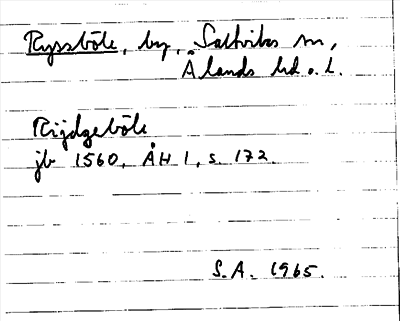 Ryssböle, by, Saltviks sn,
Ålands hd o. L.
Rijdgeböle
jb 1560, ÅH 1, s. 172.
S.A. 1965.